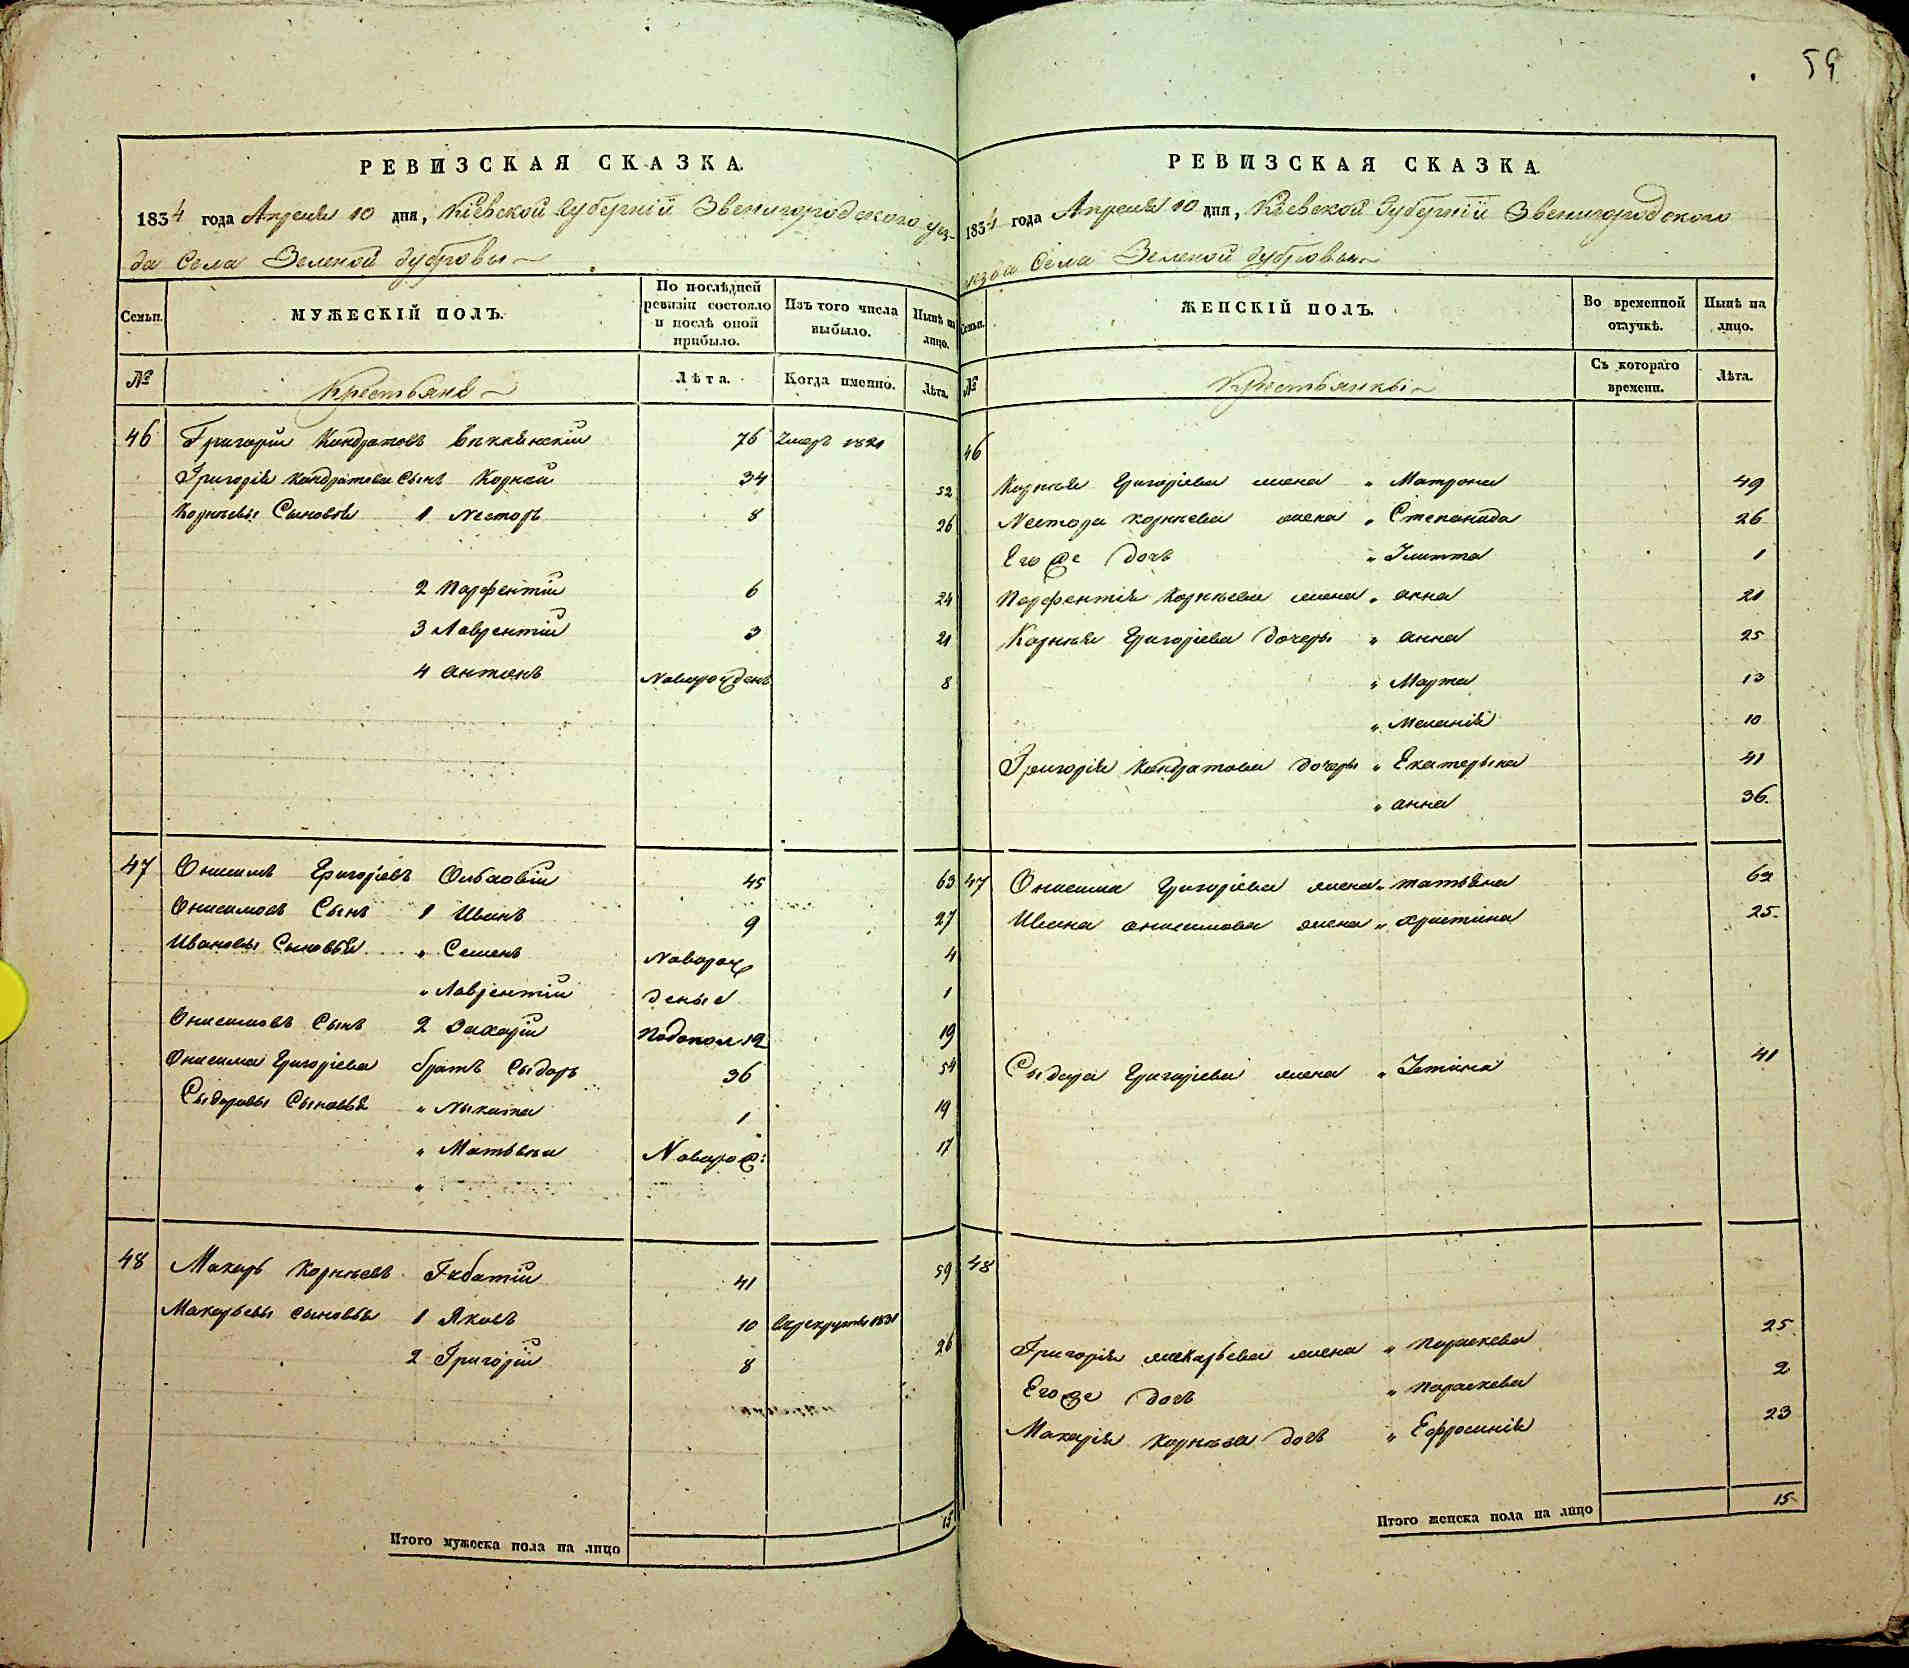 59
РЕВИЗСКАЯ СКАЗКА.
1834 года Апреля 10 дня, Кіевской Губерніи Звенигородского уез-
да Села Зеленой Дубровы
Семьи.
МУЖЕСКІЙ ПОЛЪ.
По послѣдней ревизіи состояло и послѣ оной прибыло.
Изъ того числа выбыло.
Нынѣ на лицо.
№
Крестьяне
Лѣта.
Когда именно.
Лѣта.
46 Григорій Кондратовъ 76 Умеръ 1821
Григорія Кондратова Сынъ Корней 34 52
Корнѣевы Сыновья 1 Несторъ 8 26
2 Парфентій 6 24
3 Лаврентій 3 21
4 Антонъ Новорожденъ 8
47 Онисимъ Григоріевъ 45 63
Онисимовъ Сынъ 1 Иванъ 9 27
Ивановы Сыновья " Семенъ Новорож 4
" Лаврентій деные 1
Онисимовъ Сынъ 2 Захарій 19
Онисима Григоріева братъ Сыдоръ 36 54
Сыдоровы Сыновья " Мыкита 1 19
" Матвей Новорож: 17
48 Макаръ Корнѣевъ 41 59
Макарьевы сыновья 1 Яковъ 10 Врекруты 1831
2 Григорій 8 26
Итого мужеска пола на лицо 15
РЕВИЗСКАЯ СКАЗКА.
1834 года Апреля 10 дня, Кіевской Губерніи Звенигородского
уезда Села Зеленой Дубровы
Семьи.
ЖЕНСКІЙ ПОЛЪ.
Во временной отлучкѣ.
Нынѣ на лицо.
№
Крестьянки
Съ котораго времени.
Лѣта.
46
Корнея Григоріева жена " Матрона 49
Нестора Корнѣева жена " Степанида 26
Его же дочь 1
Парфентія Корнѣева жена " Анна 21
Корнея Григоріева дочеры " Анна 25
" Марта 13
" Меланія 10
Григорія Кондратова дочеры " Екатерына 41
" Анна 36.
47 Онисима Григоріева жена " Татьяна 62
Ивана Онисимова жена " Христина 25.
Сыдора Григоріева жена " 41
48
Григорія Макарьева жена " Параскева 25
Его же дочь " Параскева 2
Макарія Корнѣева дочь " Ефросинія 23
Итого женска пола на лицо 15